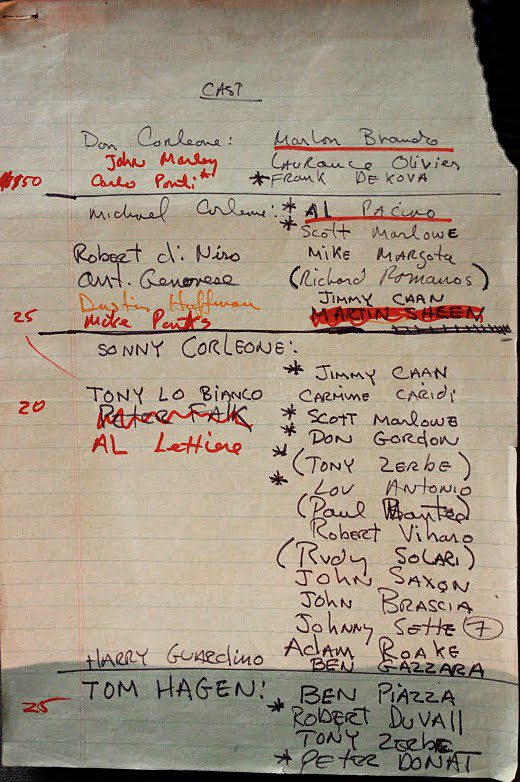 CAST
Don Corleone: Marlon Brando
John Marley Laurance Olivier
Carlo Ponti * * FRANK DE KOVA
150
Michael Corleone: * AL PACINO
* Scott MARLOWE
Robert di Niro MIKE MARGOTA
Ant. Genovese (Richard Romanos)
Dustin Hoffman JIMMY CAAN
25 Mike Parks MARTIN SHEEN
SONNY CORLEONE:
* JIMMY CAAN
TONY LO BIANCO CARMINE CARIDI
20 Peter FALK * Scott MARLOWE
AL Lettiere * DON GORDON
* (TONY ZERBE)
* LOU ANTONIO
(Paul)
Robert Viharo
(RUDY SOLARI)
JOHN SAXON
JOHN BRASCIA
Johnny SETTE 7
Adam ROAKE
HARRY GUARDINO BEN GAZZARA
TOM HAGEN: BEN PIAZZA
25 * ROBERT DUVAll
TONY ZERBE
* PETER DONAT